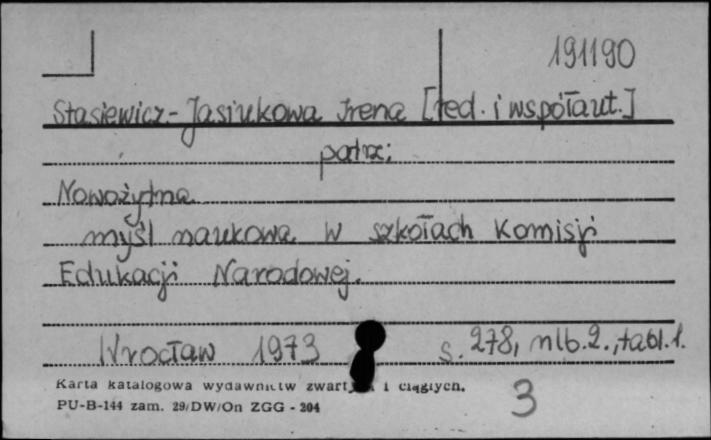 191190
Stasiewicz-Jasiukowa Irena [red. i współaut.]
patrz:
Nowożytna
myśl naukowa w szkołach Komisji
Edukacji Narodowej.
Wrocław 1973 s. 278, nlb. 2., tabl. 1.
Karta katalogowa wydawnictw i ciągłych.
PU-B-144 zam. 29/DW/On ZGG - 204
3